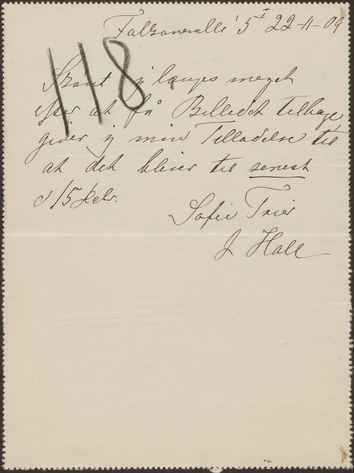 Falkoneralle 5 I 22-11-09
118
Skønt jeg længes meget
efter at få Billedet tilbage
giver jeg min Tilladelse til
at det bliver til senest
d 15 febr.
Sofie Trier
J Hall